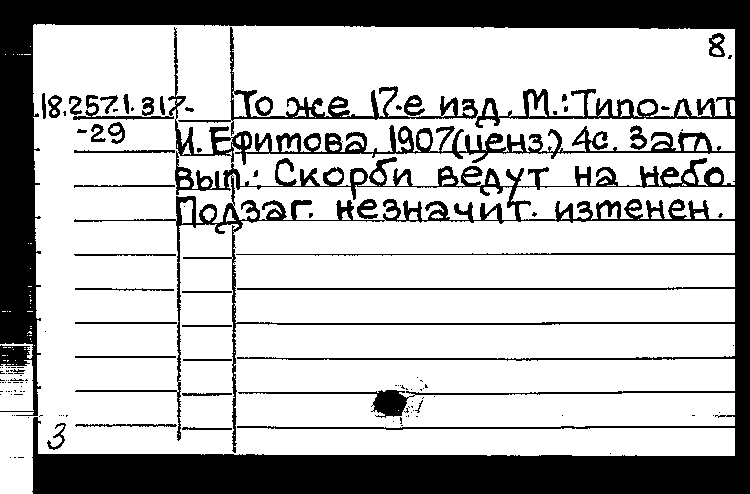 8.
18.257.1.317- То же. 17-е изд. М.: Типо-лит
-29 И. Ефимова, 1907(ценз.) 4с. Загл.
вып.: Скорби ведут на небо.
Подзаг. незначит. изменен.
3